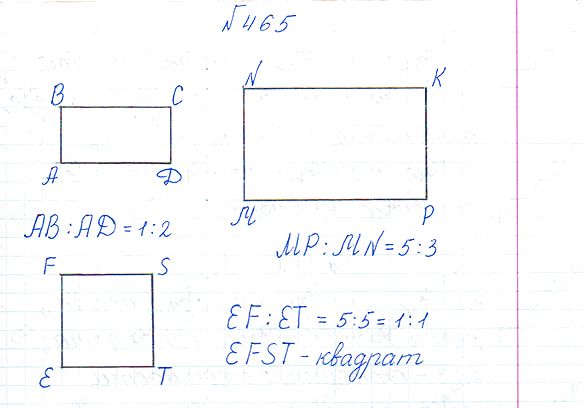 №465
B C
A D
AB : AD = 1 : 2
N K
M P
MP : MN = 5 : 3
F S
E T
EF : ET = 5 : 5 = 1 : 1
EFST - квадрат